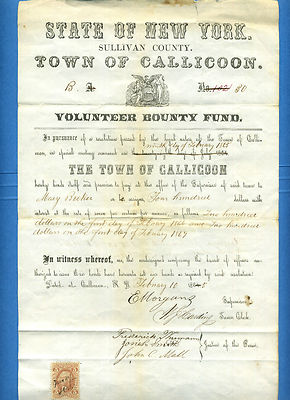 STATE OF NEW YORK.
SULLIVAN COUNTY.
TOWN OF CALLICOON.
B. A. No. 102 80
VOLUNTEER BOUNTY FUND.
In pursuance of a resolution passed by the legal voters of the Town of Calli-
coon, at special meeting convened on the ninth day of February 1865
THE TOWN OF CALLICOON
hereby binds itself and promises to pay at the office of the Supervisor of said town to
Mary or assigns, Four hundred dollars with
interest at the rate of seven per centum per annum, as follows, Two hundred
dollars on the first day of February 1866 and Two hundred
dollars on the first day of February 1867
In witness whereof, we, the undersigned
Dated at Callicoon, N. Y. February 10 1865
E Morgans Supervisor
Harding Town Clerk
Frederick
Josiah Smith Justices of the Peace
John C. Mall